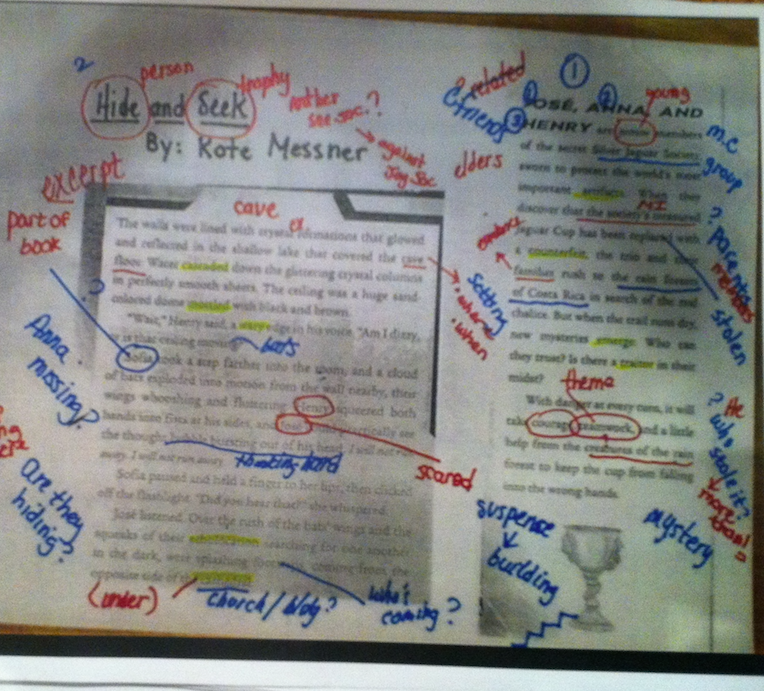 2
person
trophy
Hide and Seek
another
see soc.?
→ against
Jag Soc
By: Kate Messner
excerpt
part of
book
cave
The walls were lined with crystal formations that glowed
and reflected in the shallow lake that covered the cave
floor. Water cascaded down the glittering crystal columns
in perfectly smooth sheets. The ceiling was a huge sand-
colored dome mottled with black and brown.
"Wait," Henry said, a wary edge in his voice. "Am I dizzy,
or is that ceiling moving?"
bats
Sofia took a step farther into the room, and a cloud
of bats exploded into motion from the wall nearby, their
wings whooshing and fluttering. Henry squeezed both
hands into fists at his sides, and José could practically see
the thought bubble bursting out of his head. I will not run
away. I will not run away.
thinking hard
scared
Sofia paused and held a finger to her lips, then clicked
off the flashlight. "Did you hear that?" she whispered.
José listened. Over the rush of the bats' wings and the
squeaks of their searching for one another
in the dark, were splashing footsteps, coming from the
opposite side of the
(under)
church/bldg?
who's
coming?
?
Anna
missing?
Are they
hiding?
setting
• where
• when
? related
friends
1
1
2
3
young
JOSÉ, ANNA, AND
HENRY are junior members
of the secret Silver Jaguar Society,
sworn to protect the world's most
important artifacts. When they
discover that the society's treasured
Jaguar Cup has been replaced with
a counterfeit, the trio and their
families rush to the rain forest
of Costa Rica in search of the real
chalice. But when the trail runs dry,
new mysteries emerge. Who can
they trust? Is there a traitor in their
midst?
theme
With danger at every turn, it will
take courage, teamwork, and a little
help from the creatures of the rain
forest to keep the cup from falling
into the wrong hands.
m.c
group
elders
MI
? parents
members
stolen
? He
who
stole it?
more
than 1
mystery
suspense
↓
building